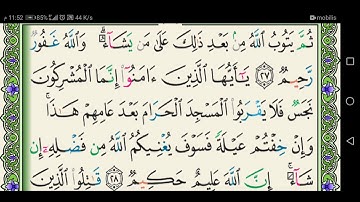 م 11:52 85% 44 K/s mobilis
ثُمَّ يَتُوبُ اللَّهُ مِنۢ بَعْدِ ذَٰلِكَ عَلَىٰ مَن يَشَآءُ ۗ وَاللَّهُ غَفُورٌ
رَّحِيمٌ ٢٧ يَٰٓأَيُّهَا الَّذِينَ ءَامَنُوٓا۟ إِنَّمَا الْمُشْرِكُونَ
نَجَسٌ فَلَا يَقْرَبُوا۟ الْمَسْجِدَ الْحَرَامَ بَعْدَ عَامِهِمْ هَٰذَا ۚ
وَإِنْ خِفْتُمْ عَيْلَةً فَسَوْفَ يُغْنِيكُمُ اللَّهُ مِن فَضْلِهِۦٓ إِن
شَآءَ ۚ إِنَّ اللَّهَ عَلِيمٌ حَكِيمٌ ٢٨ قَٰتِلُوا۟ الَّذِينَ